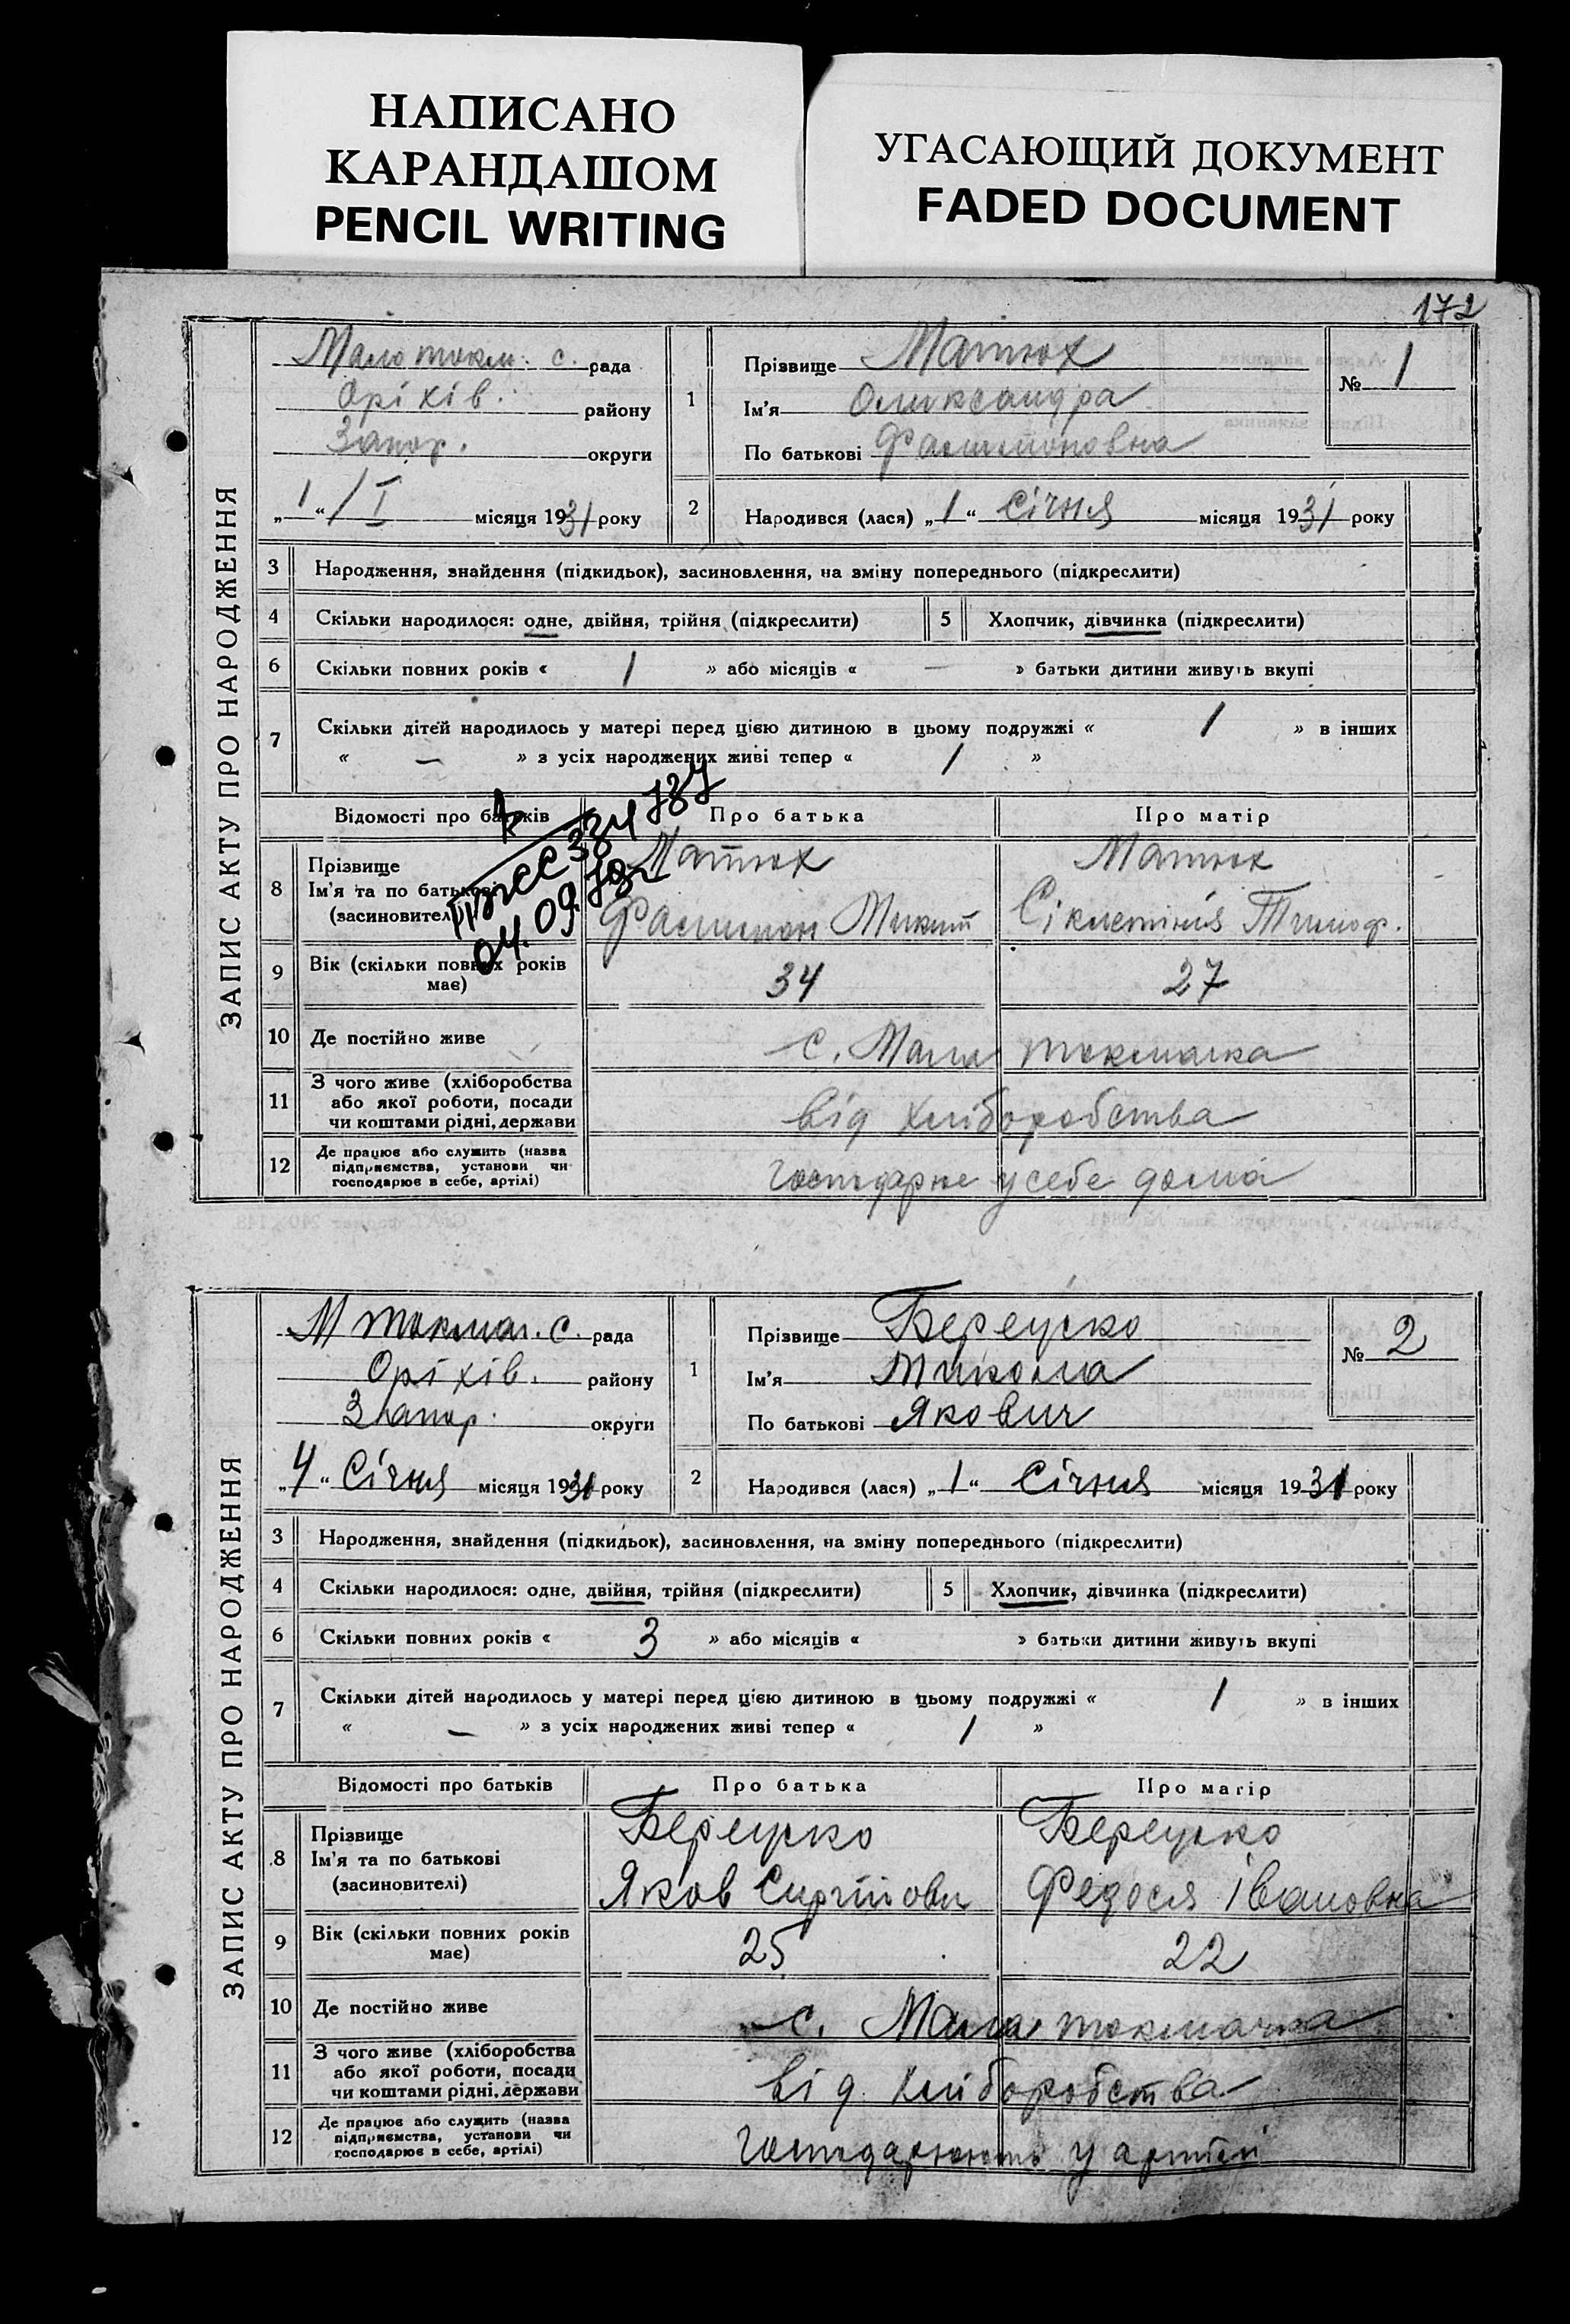 НАПИСАНО
КАРАНДАШОМ
PENCIL WRITING
УГАСАЮЩИЙ ДОКУМЕНТ
FADED DOCUMENT
172
ЗАПИС АКТУ ПРО НАРОДЖЕННЯ
Мало токм. с. рада
Оріхів. району
Запор. округи
„1“ / I місяця 1931 року
1
Прізвище Матюх
Ім'я Олександра
По батькові Филимоновна
№ 1
2 Народився (лася) „1“ Січня місяця 1931 року
3 Народження, знайдення (підкидьок), засиновлення, на зміну попереднього (підкреслити)
4 Скільки народилося: одне, двійня, трійня (підкреслити) 5 Хлопчик, дівчинка (підкреслити)
6 Скільки повних років « 1 » або місяців « — » батьки дитини живуть вкупі
7 Скільки дітей народилось у матері перед цією дитиною в цьому подружжі « 1 » в інших
« — » з усіх народжених живі тепер « 1 »
Відомості про батьків Про батька Про матір
8 Прізвище Матюх Матюх
Ім'я та по батькові
(засновителі) Филимон Микит Тимоф.
9 Вік (скільки повних років має) 34 27
10 Де постійно живе с. Мала токмачка
11 З чого живе (хліборобства
або якої роботи, посади
чи коштами рідні, держави від хліборобства
12 Де працює або служить (назва
підприємства, установи чи
господарює в себе, артілі) господарює у себе дома
ЗАПИС АКТУ ПРО НАРОДЖЕННЯ
М токмач. с. рада
Оріхів. району
Запор. округи
„4“ Січня місяця 1931 року
1
Прізвище
Ім'я Микола
По батькові Якович
№ 2
2 Народився (лася) „1“ Січня місяця 1931 року
3 Народження, знайдення (підкидьок), засиновлення, на зміну попереднього (підкреслити)
4 Скільки народилося: одне, двійня, трійня (підкреслити) 5 Хлопчик, дівчинка (підкреслити)
6 Скільки повних років « 3 » або місяців « » батьки дитини живуть вкупі
7 Скільки дітей народилось у матері перед цією дитиною в цьому подружжі « 1 » в інших
« — » з усіх народжених живі тепер « 1 »
Відомості про батьків Про батька Про матір
8 Прізвище
Ім'я та по батькові
(засиновителі) Яков Федося Івановна
9 Вік (скільки повних років має) 25 22
10 Де постійно живе с. Мала токмачка
11 З чого живе (хліборобства
або якої роботи, посади
чи коштами рідні, держави від хліборобства
12 Де працює або служить (назва
підприємства, установи чи
господарює в себе, артілі) господарюють у артілі